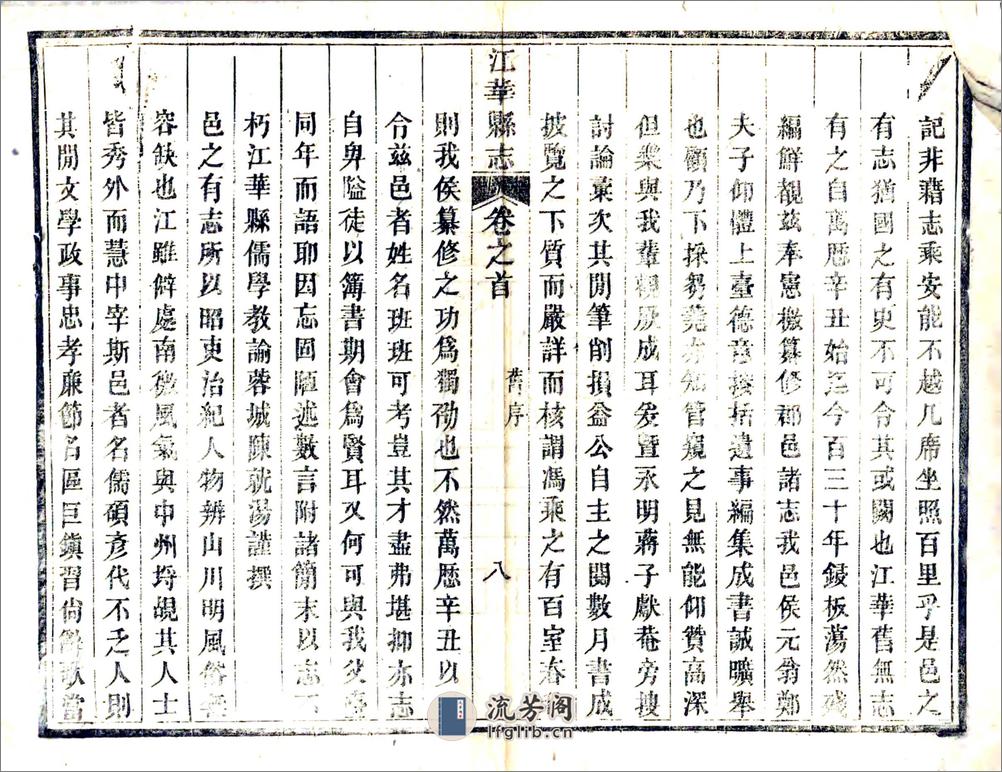 記非藉志乘安能不越几席坐照百里乎是邑之
有志猶國之有史不可令其或闕也江華舊無志
有之自萬歷辛丑始迄今百三十年鋟板蕩然殘
編鮮覩茲奉憲檄纂修郡邑諸志我邑侯元翁鄭
夫子仰體上臺德意搜括遺事編集成書誠曠舉
也顧乃下採芻蕘亦知管窺之見無能仰贊高深
但樂與我輩觀厥成耳爰暨永明蔣子獻菴旁搜
討論彙次其閒筆削損益公自主之閱數月書成
披覽之下質而嚴詳而核謂馮乘之有百室春
江華縣志 卷之首 舊序 八
則我侯纂修之功為獨劭也不然萬歷辛丑以
令茲邑者姓名班班可考豈其才盡弗堪抑亦志
自卑隘徒以簿書期會為賢耳又何可與我父
同年而語耶因忘固陋述數言附諸簡末以志不
朽江華縣儒學教諭蓉城陳就湯謹撰
邑之有志所以昭吏治紀人物辨山川明風俗
容缺也江雖僻處南徼風氣與中州埒覘其人士
皆秀外而慧中宰斯邑者名儒碩彥代不乏人則
其閒文學政事忠孝廉節名區巨鎮習尚 當
流芳阁
lfglib.cn